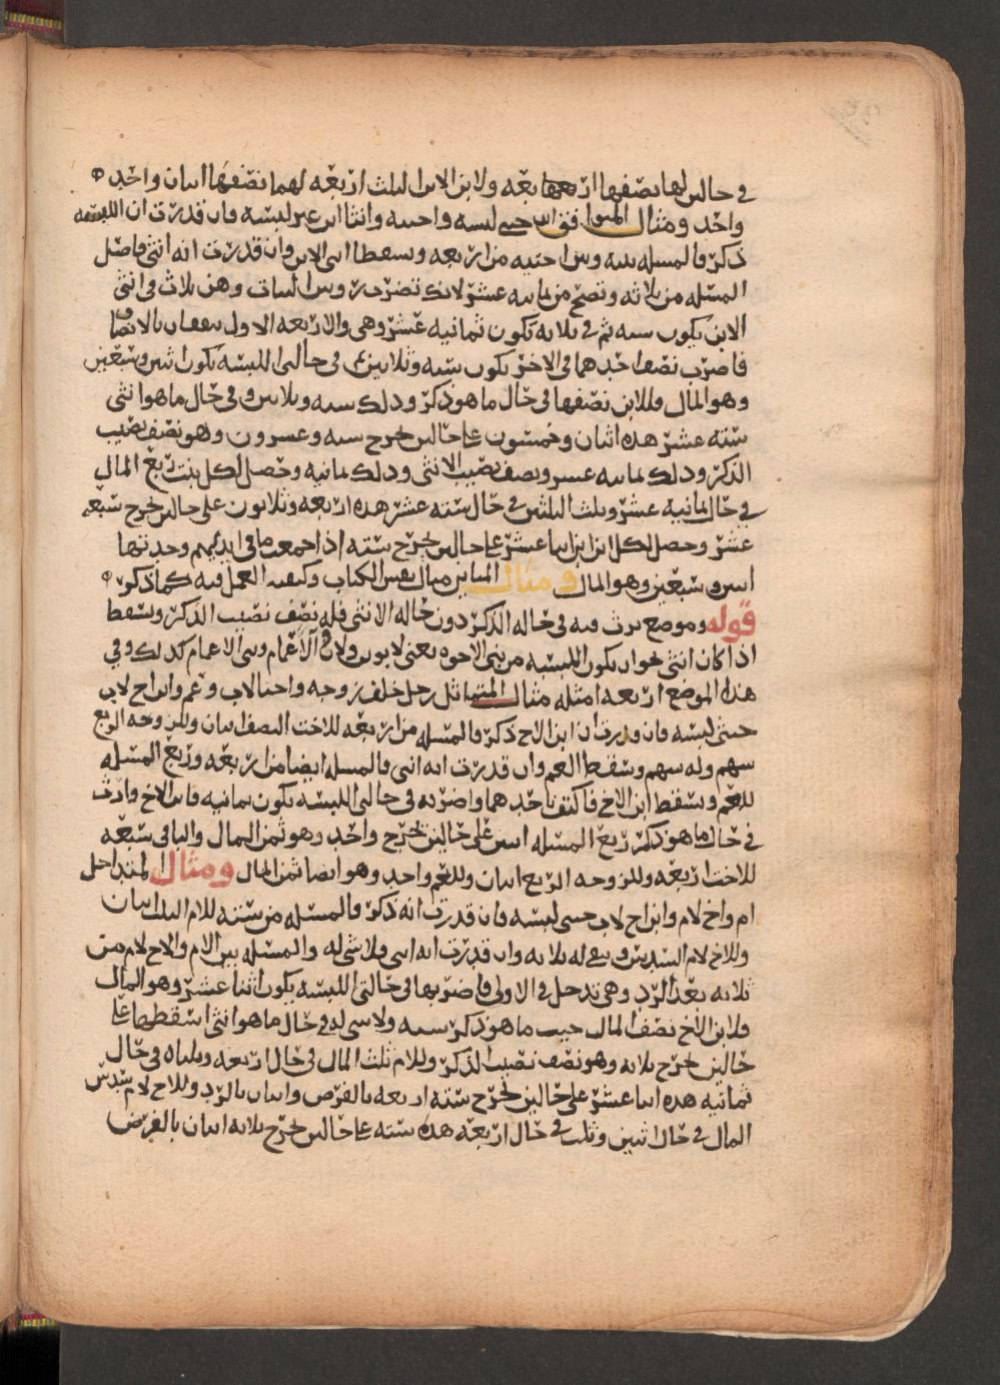 في حالين لها نصفها اربعه ولابن الابن الثلث اربعه لهما نصفها اثنان واحد
واحد ومثال الموافق اب خنثى لبسه وانثا ابن غير لبسه فان قدرت ان اللبسه
ذكر فالمسله من اربعه وسقطا انثى الابن وان قدرت انه انثى فاصل
المسله من ثلاثه وتصح من ثمانيه عشر لانك تضرب روس البنات وهن ثلاث في انثى
الابن يكون سته ثم في ثلاثه تكون ثمانيه عشر وهي والاربعه الاول يتفقان بالانصاف
فاضرب نصف احدهما في الاخر يكون سته وثلاثين في حالتى اللبسه تكون اثنين وسبعين
وهو المال فللابن نصفها في حال ما هو ذكر وذلك سته وثلاثين وفي حال ما هو انثى
سته عشر هذه اثنان وخمسون على حالين تخرج سته وعشرون وهو نصف نصيب
الذكر وذلك ثمانيه عشر ونصف نصيب الانثى وذلك ثمانيه وحصل لكل بنت ربع المال
في حال ثمانيه عشر وثلث الثلثين في حال سته عشر هذه اربعه وثلاثون على حالين تخرج سبعه
عشر وحصل لكل ابن ابن اثنا عشر على حالين تخرج سته اذا جمعت ما في ايديهم وجدتها
اثنين وسبعين وهو المال ومثال المباين مثال نفس الكتاب وكيفيه العمل فيه كما ذكر
قوله وموضع يرث فيه في حاله الذكر دون حاله الانثى فله نصف نصيب الذكر وسقط
اذا كان انثى نحو ان يكون اللبسه من بني الاخوه يعني لابوين ولاب او الاعمام وبني الاعمام كذلك وفي
هذا الموضع اربعه امثله مثال المتماثل رجل خلف زوجه واختا لاب وعم وابن اخ لاب
خنثى لبسه فان قدرت ان ابن الاخ ذكر فالمسله من اربعه للاخت النصف اثنان وللزوجه الربع
سهم وله سهم وسقط العم وان قدرت انه انثى فالمسله ايضا من اربعه وربع المسله
للعم وسقط ابن الاخ فاكتف باحدهما واضربه في حالتى اللبسه تكون ثمانيه فابن الاخ وارث
في حال ما هو ذكر ربع المسله اثنين على حالين تخرج واحد وهو ثمن المال والباقي سبعه
للاخت اربعه وللزوجه الربع اثنان وللعم واحد وهو ايضا ثمن المال ومثال المتداخل
ام واخ لام وابن اخ لاب خنثى لبسه فان قدرت انه ذكر فالمسله من سته للام الثلث اثنان
وللاخ لام السدس وبقي له ثلاثه وان قدرت انه انثى فلا شي له والمسله بين الام والاخ لام من
ثلاثه بعد الرد وهي تدخل في الاولى فاضربها في حالتى اللبسه يكون اثنا عشر وهو المال
فلابن الاخ نصف المال حيث ما هو ذكر سته ولا شي له في حال ما هو انثى اسقطها على
حالين تخرج ثلاثه وهو نصف نصيب الذكر وللام ثلث المال في حال اربعه وثلثاه في حال
ثمانيه هذه اثنا عشر على حالين تخرج سته اربعه بالفرض واثنان بالرد وللاخ لام سدس
المال في حال اثنين وثلث في حال اربعه هذه سته على حالين تخرج ثلاثه اثنان بالفرض